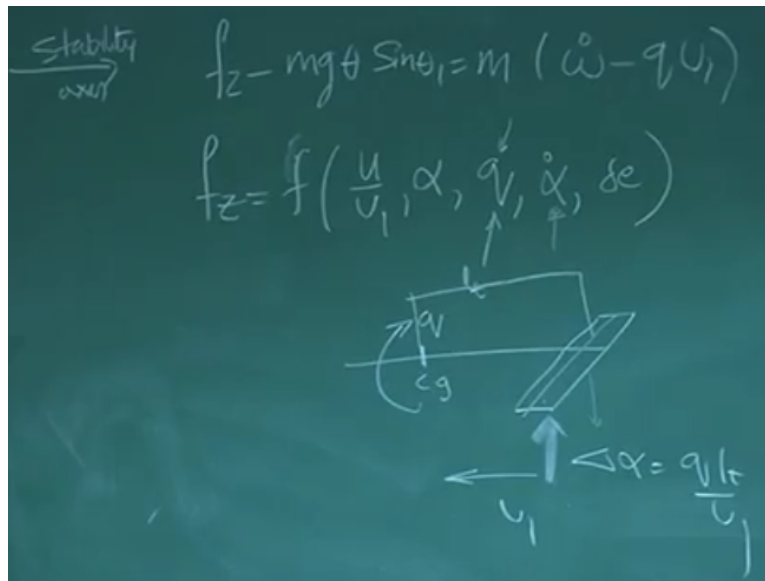 Stability
axes
f_z - mgθ Sinθ₁ = m (ẇ - qU₁)
f_z = f(u/U₁, α, q, α̇, δe)
l_t
q
cg
Δα = q l_t / U₁
U₁